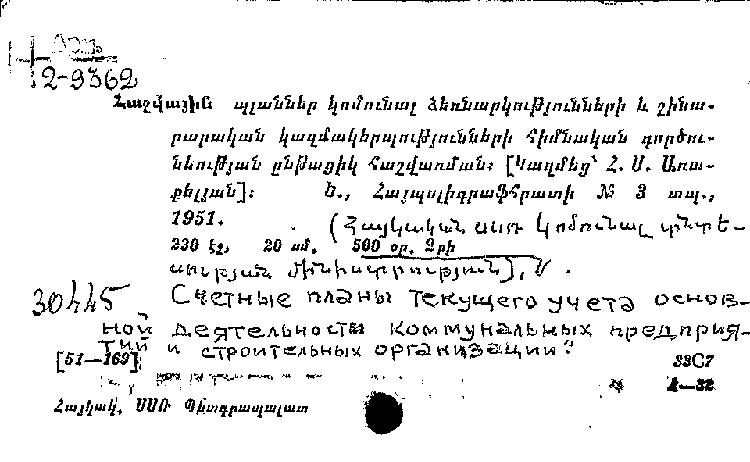 2-9362
Հաշվային պլաններ կոմունալ ձեռնարկությունների և շինա-
րարական կազմակերպությունների հիմնական գործու-
նեության ընթացիկ հաշվառման: [Կազմեց՝ Հ. Մ. Առա-
քելյան]: Ե., Հայպոլիգրաֆհրատի № 3 տպ.,
1951.
(Հայկական ՍՍՌ կոմունալ տնտե-
230 էջ, 20 սմ. 500 օր. Ձրի
սության մինիստրություն),
30445 Счетные планы текущего учета основ-
ной деятельности коммунальных предприя-
тий и строительных организации"
[51—169] 33С7
Հայկակ. ՍՍՌ Պետգրապալատ